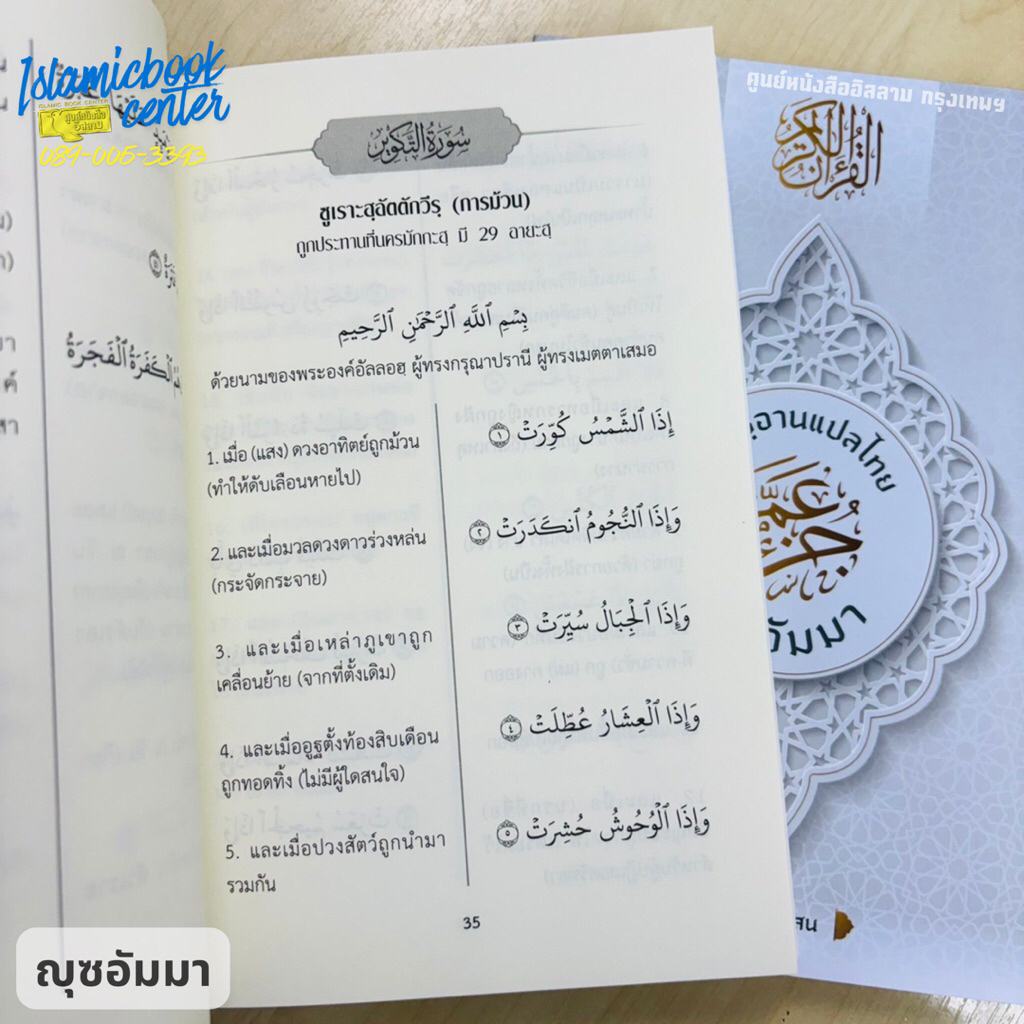 Islamicbook
center
ISLAMIC BOOK CENTER
ศูนย์หนังสือ
อิสลาม
089-005-3393
ٱلْكَفَرَةُ ٱلْفَجَرَةُ
سُورَةُ التَّكْوِير
ซูเราะสุอัตตักวีรฺ (การม้วน)
ถูกประทานที่นครมักกะฮฺ มี 29 อายะฮฺ
بِسْمِ ٱللَّهِ ٱلرَّحْمَٰنِ ٱلرَّحِيمِ
ด้วยนามของพระองค์อัลลอฮฺ ผู้ทรงกรุณาปรานี ผู้ทรงเมตตาเสมอ
إِذَا ٱلشَّمْسُ كُوِّرَتْ ١
1. เมื่อ (แสง) ดวงอาทิตย์ถูกม้วน
(ทำให้ดับเลือนหายไป)
وَإِذَا ٱلنُّجُومُ ٱنكَدَرَتْ ٢
2. และเมื่อมวลดวงดาวร่วงหล่น
(กระจัดกระจาย)
وَإِذَا ٱلْجِبَالُ سُيِّرَتْ ٣
3. และเมื่อเหล่าภูเขาถูก
เคลื่อนย้าย (จากที่ตั้งเดิม)
وَإِذَا ٱلْعِشَارُ عُطِّلَتْ ٤
4. และเมื่ออูฐตั้งท้องสิบเดือน
ถูกทอดทิ้ง (ไม่มีผู้ใดสนใจ)
وَإِذَا ٱلْوُحُوشُ حُشِرَتْ ٥
5. และเมื่อปวงสัตว์ถูกนำมา
รวมกัน
35
ศูนย์หนังสืออิสลาม กรุงเทพฯ
القرآن الكريم
อานแปลไทย
جزء عم
อัมมา
ญุซอัมมา